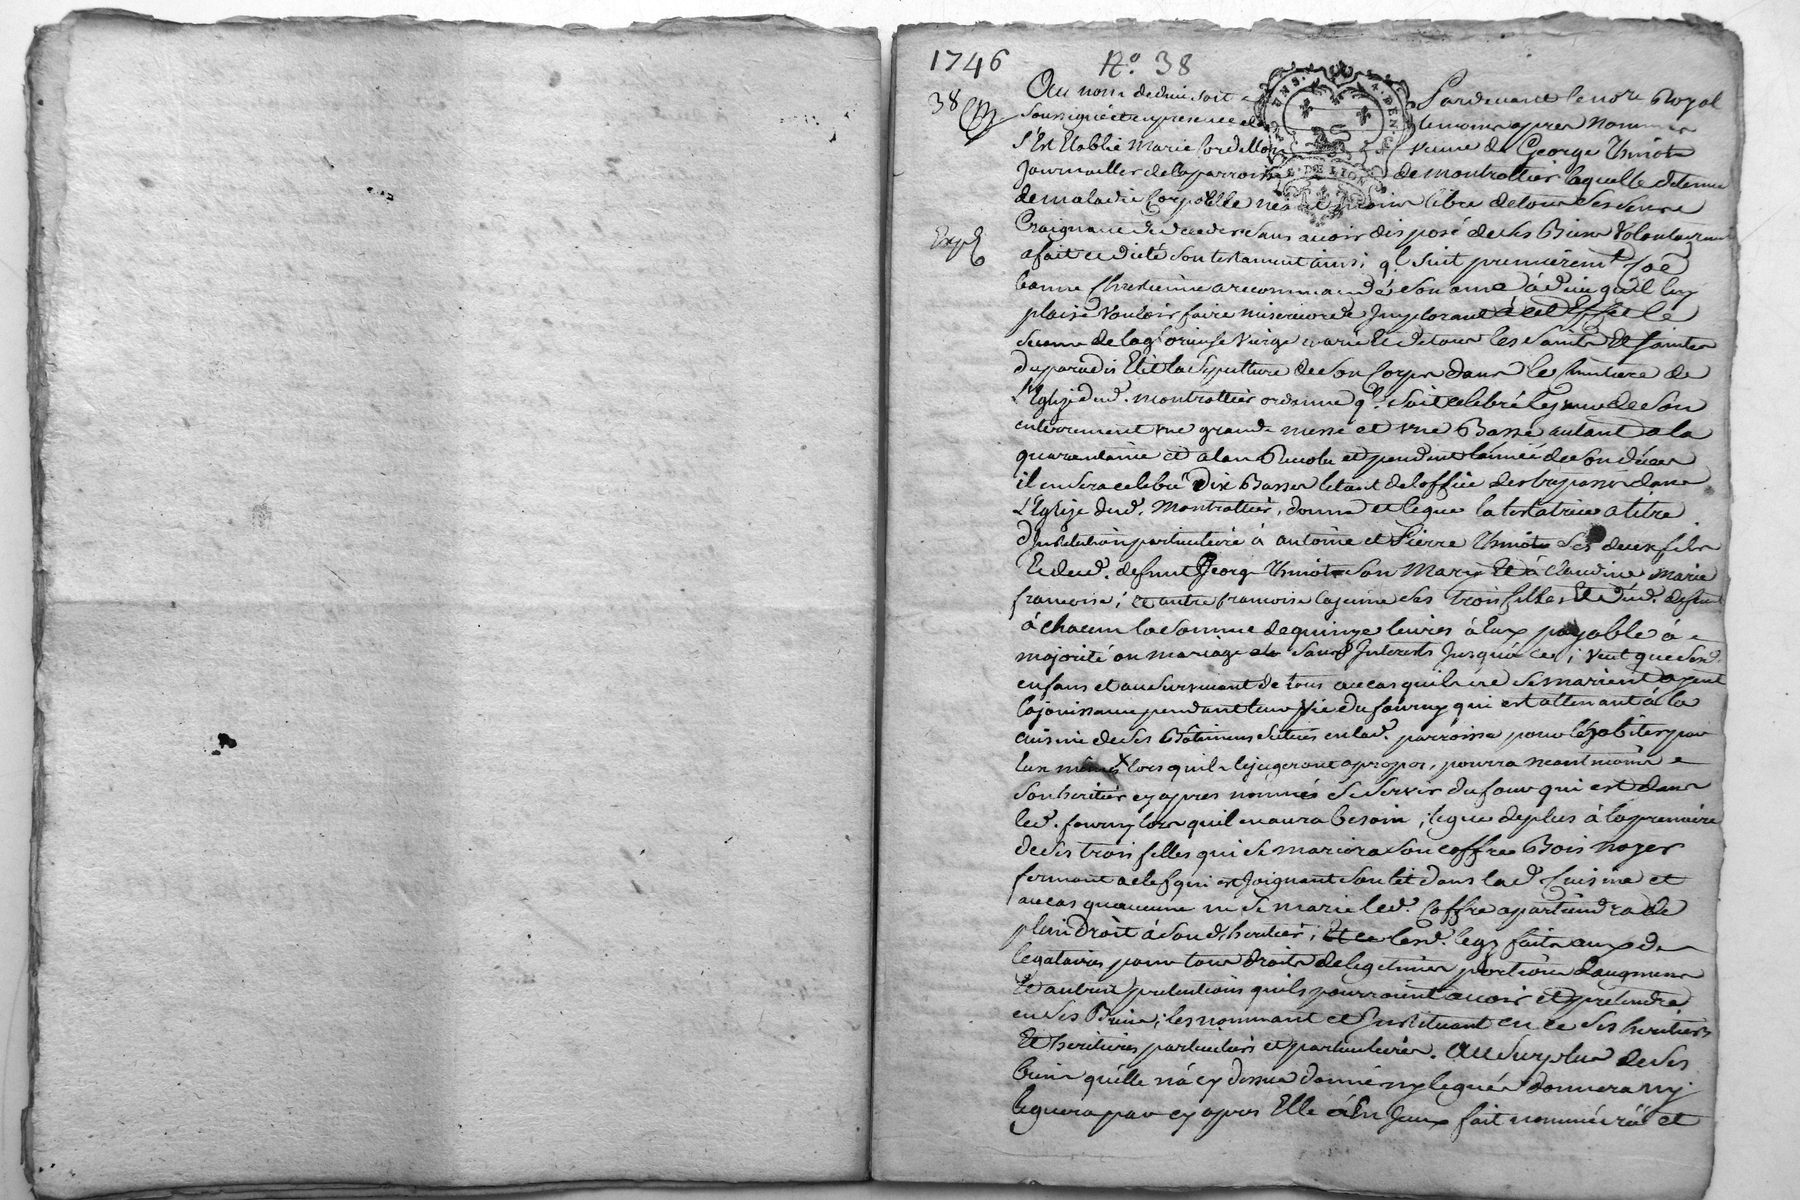 1746 N.o 38
38
Au nom de dieu soit Pardevant le no.re Royal
soussigné et en presence des temoins apres nommes
s'Est Etablie Marie Cordellon veuve de George Thinot
Journallier de la parroisse de montrottier laquelle detenue
de maladie Corporelle neanmoins libre de tous ses sens
Craignant de deceder sans avoir disposé de ses Biens volontairement
a fait et dicté son testament ainsi q.l suit premierem.t Coe
bonne Chretienne a recommandé son ame à dieu qu'il luy
plaise vouloir faire misericorde Implorant à cet Effet le
secours de la glorieuse vierge marie Et de tous les saints Et saintes
du paradis Elit la sepulture de son Corps dans le Cimetiere de
L'Eglize dud. montrottier ordonne q.l soit celebré le jour de son
enterrement une grande messe et une Basse autant a la
quarantaine et a lan Revolu et pendant l'année de son déces
il en sera celebré dix Basses le tout de l'office des trepassés dans
L'Eglize dud. Montrottier, donne et legue la testatrice a titre
d'Institution particuliere à antoine et Pierre Thinot ses deux fils
Et dud. defunt George Thinot son Mary Et à Claudine marie
francoise, et autre francoise ses trois filles Et dud. defunt
à chacun la somme de quinze livres à Eux payable à
majorité ou mariage sans Interests Jusqu'à ce; veut que sesd.
enfans et au survivant de tous au cas qu'ils ne se marient ayent
la jouissance pendant leur vie du fourny qui est attenant à la
cuisine de ses Bâtimens situés en lad. parroisse pour l'habiter par
Eux mêmes lors qu'ils le jugeront apropos, pourra neantmoins
son heritier cy apres nommé se servir du four qui est dans
led. fourny lors qu'il en aura besoin; legue de plus à la premiere
de ses trois filles qui se mariera son coffre Bois noyer
fermant a clef qui est Joignant son lit dans lad. Cuisine et
au cas qu'aucune ne se marie led. Coffre apartiendra de
plein Droit à son d. heritier; Et ce lesd. legs faits auxd.
legataires pour tous droits de legitimes portions d'augment
Et autres pretentions qu'ils pourroient avoir et pretendre
en ses Biens; les nommant et Instituant en ce ses heritiers
Et heritieres particuliers et particulieres. Au Surplus de ses
biens qu'elle n'a cy dessus donnés ny legués donnera ny
leguera par cy apres Elle a fait nommé créé et